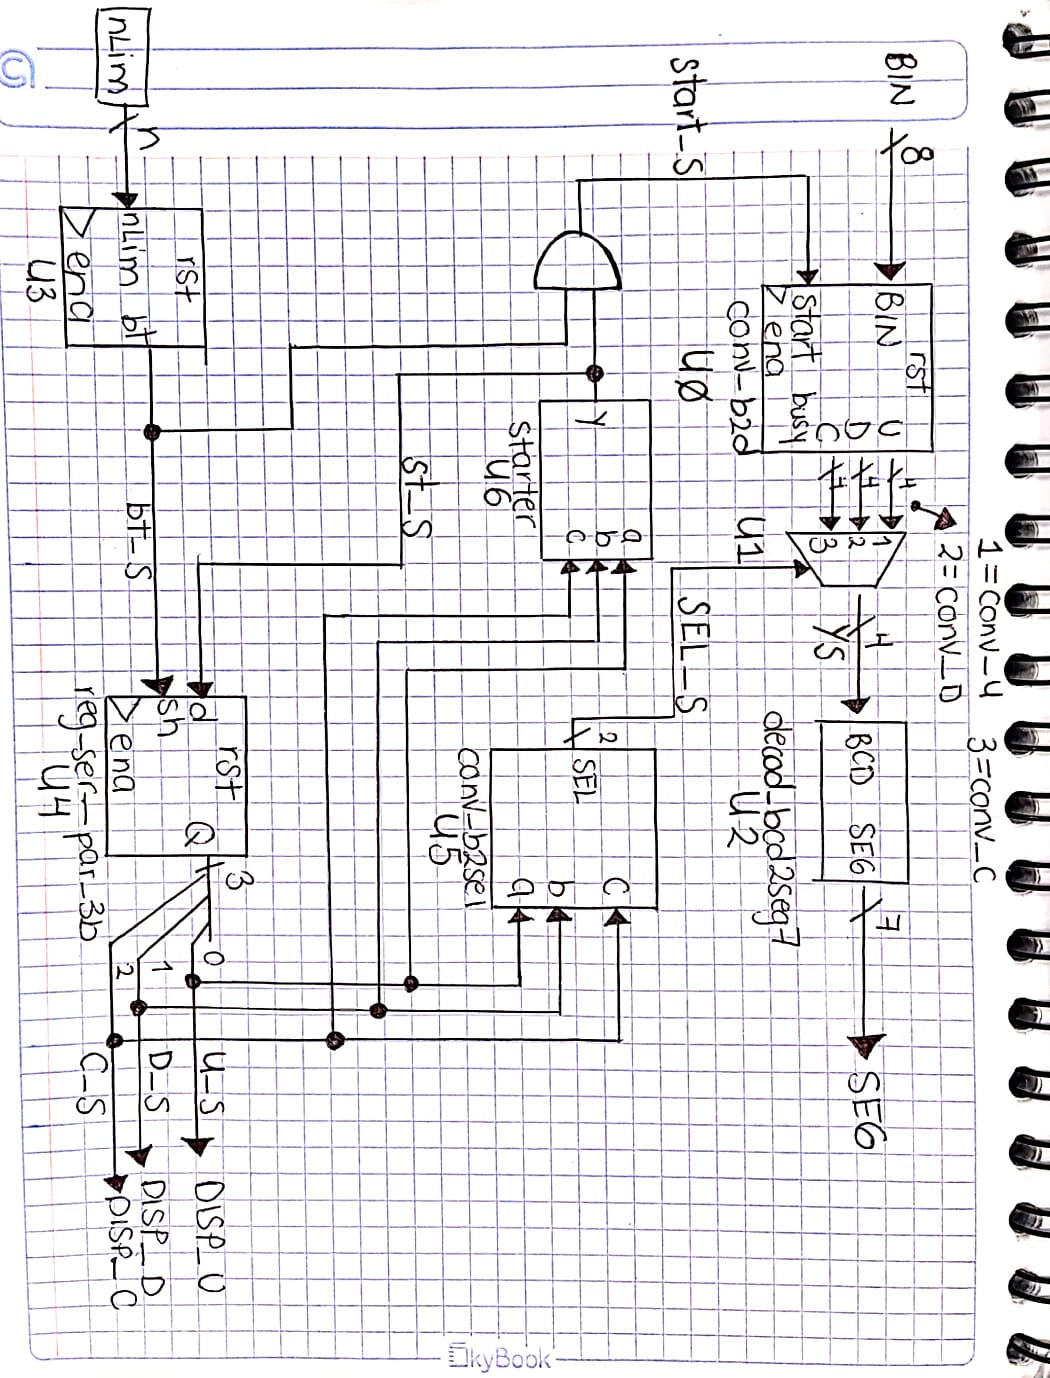 1=conv_U 3=conv_C
2=conv_D
BIN 8
rst
BIN U 4 1
D 4 2
C 4 3
start busy
ena
conv-b2d
U0
U1
4
YS
BCD SEG
7
SEG
decod_bcd2seg7
U2
start_S
SEL_S
a
b
c
Y
starter
U6
2
SEL
C
b
a
conv-b2sel
U5
st_S
nLim n
rst
nLim bt
ena
U3
bt_S
rst
d Q
sh
ena
reg-ser-par-3b
U4
3
0 U_S DISP_U
1 D_S DISP_D
2 C_S DISP_C
SkyBook